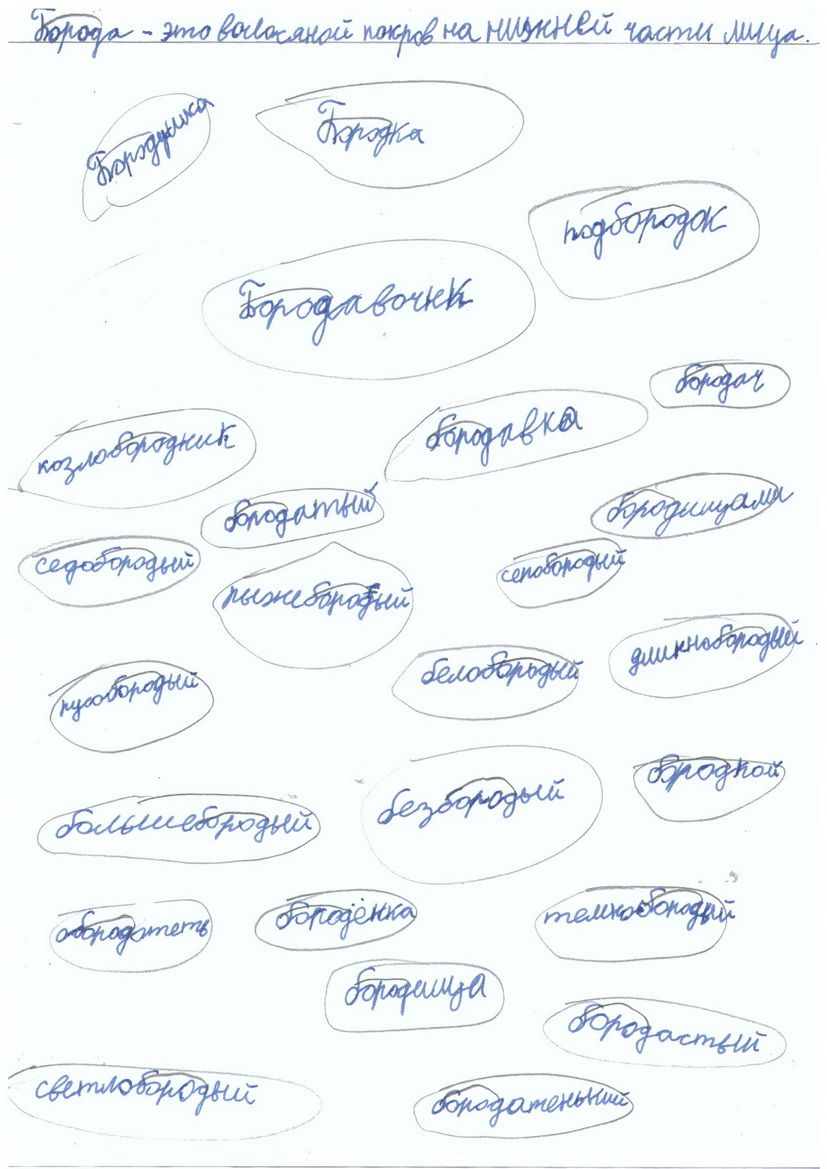 Борода - это волосяной покров на нижней части лица.
Бородушка
Бородка
подбородок
Бородавочник
бородач
козлобородник
бородавка
бородатый
бородищами
седобородый
рыжебородый
серобородый
длиннобородый
белобородый
русобородый
бородкой
безбородый
большебородый
обородатеть
бородёнка
темнобородый
бородища
бородастый
светлобородый
бородатенький